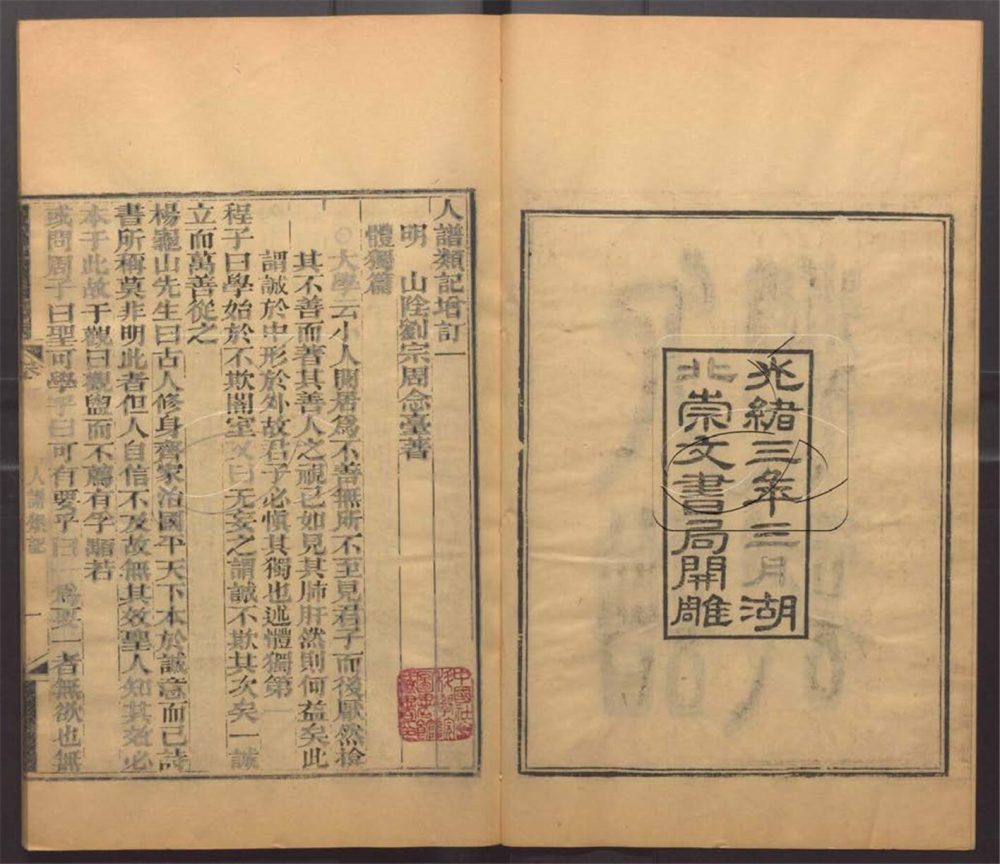 光緒三年三月湖
北崇文書局開雕
人譜類記增訂一
明　山陰劉宗周念臺著
體獨篇
大學云小人閒居爲不善無所不至見君子而後厭然揜
其不善而著其善人之視己如見其肺肝然則何益矣此
謂誠於中形於外故君子必愼其獨也述體獨第一
程子曰學始於不欺闇室又曰无妄之謂誠不欺其次矣一誠
立而萬善從之
楊龜山先生曰古人修身齊家治國平天下本於誠意而已詩
書所稱莫非明此者但人自信不及故無其效聖人知其效必
本于此故于觀曰觀盥而不薦有孚顒若
或問周子曰聖可學乎曰可有要乎曰 爲要一者無欲也無
人譜類記
一